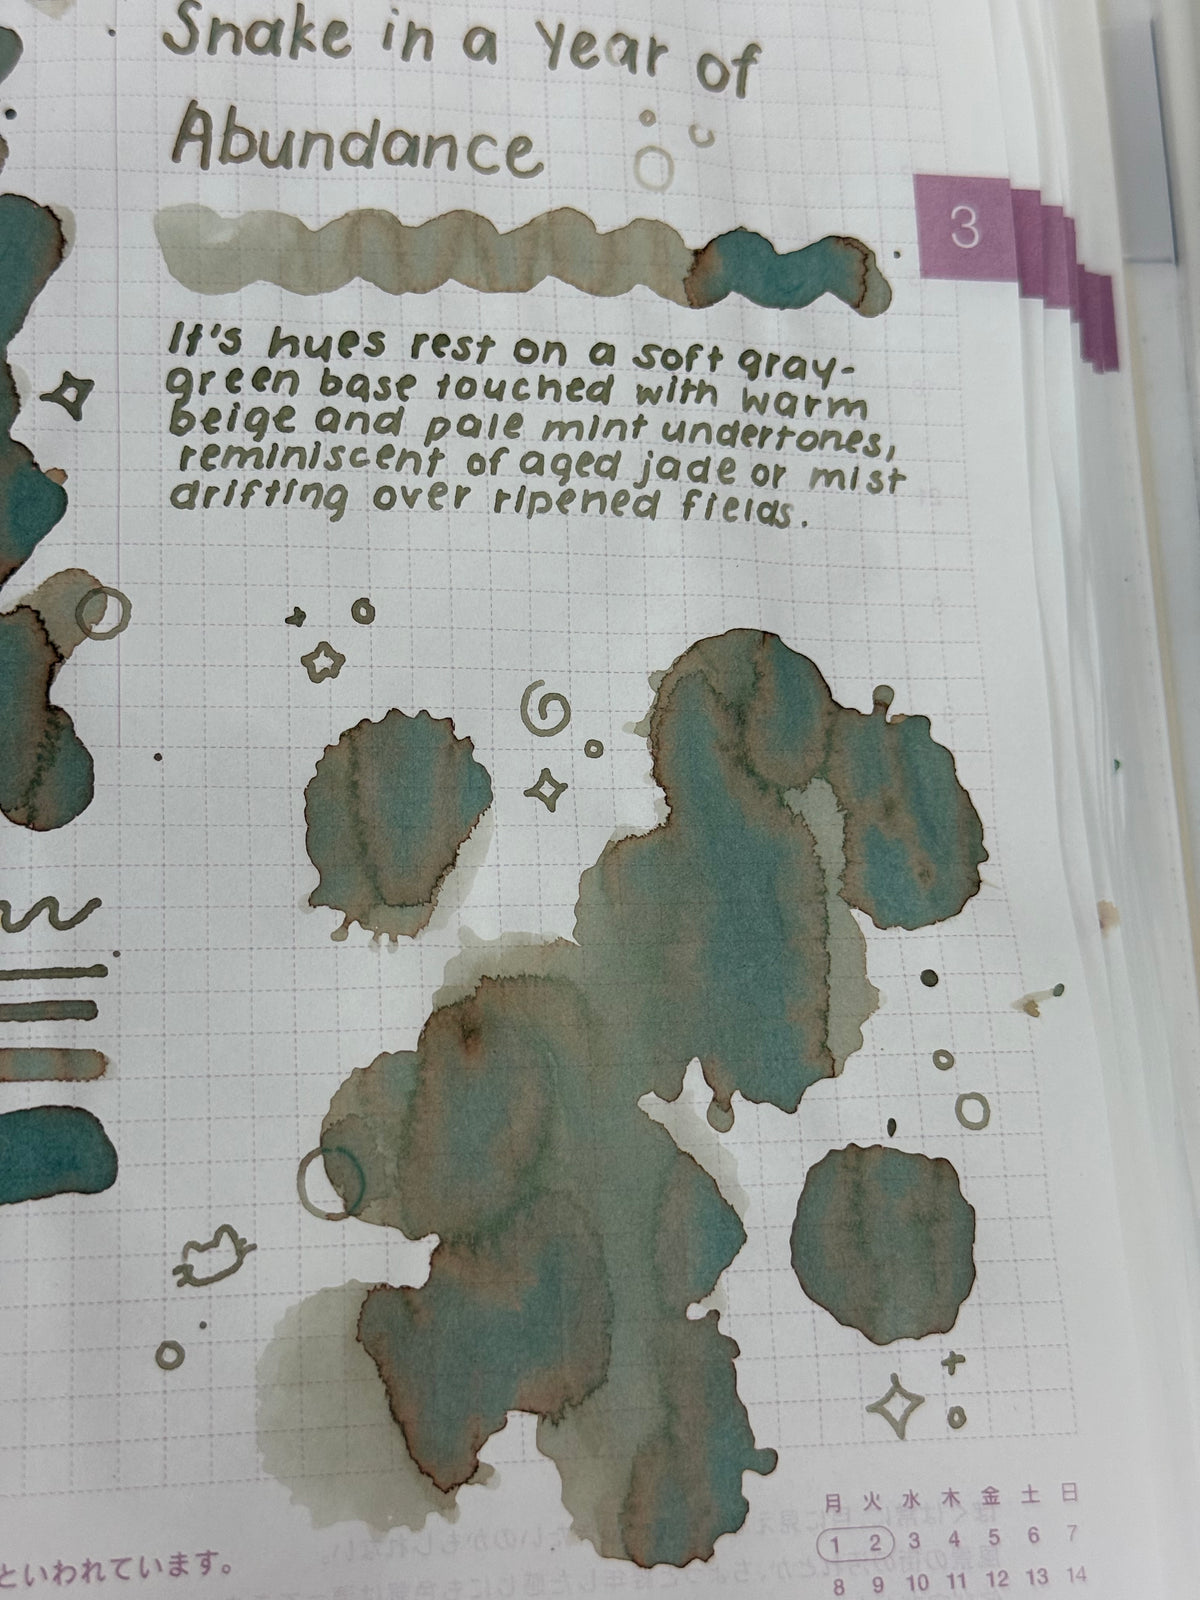 Snake in a Year of
Abundance
3
It's hues rest on a soft gray-
green base touched with warm
beige and pale mint undertones,
reminiscent of aged jade or mist
drifting over ripened fields.
月 火 水 木 金 土 日
1 2 3 4 5 6 7
8 9 10 11 12 13 14
といわれています。